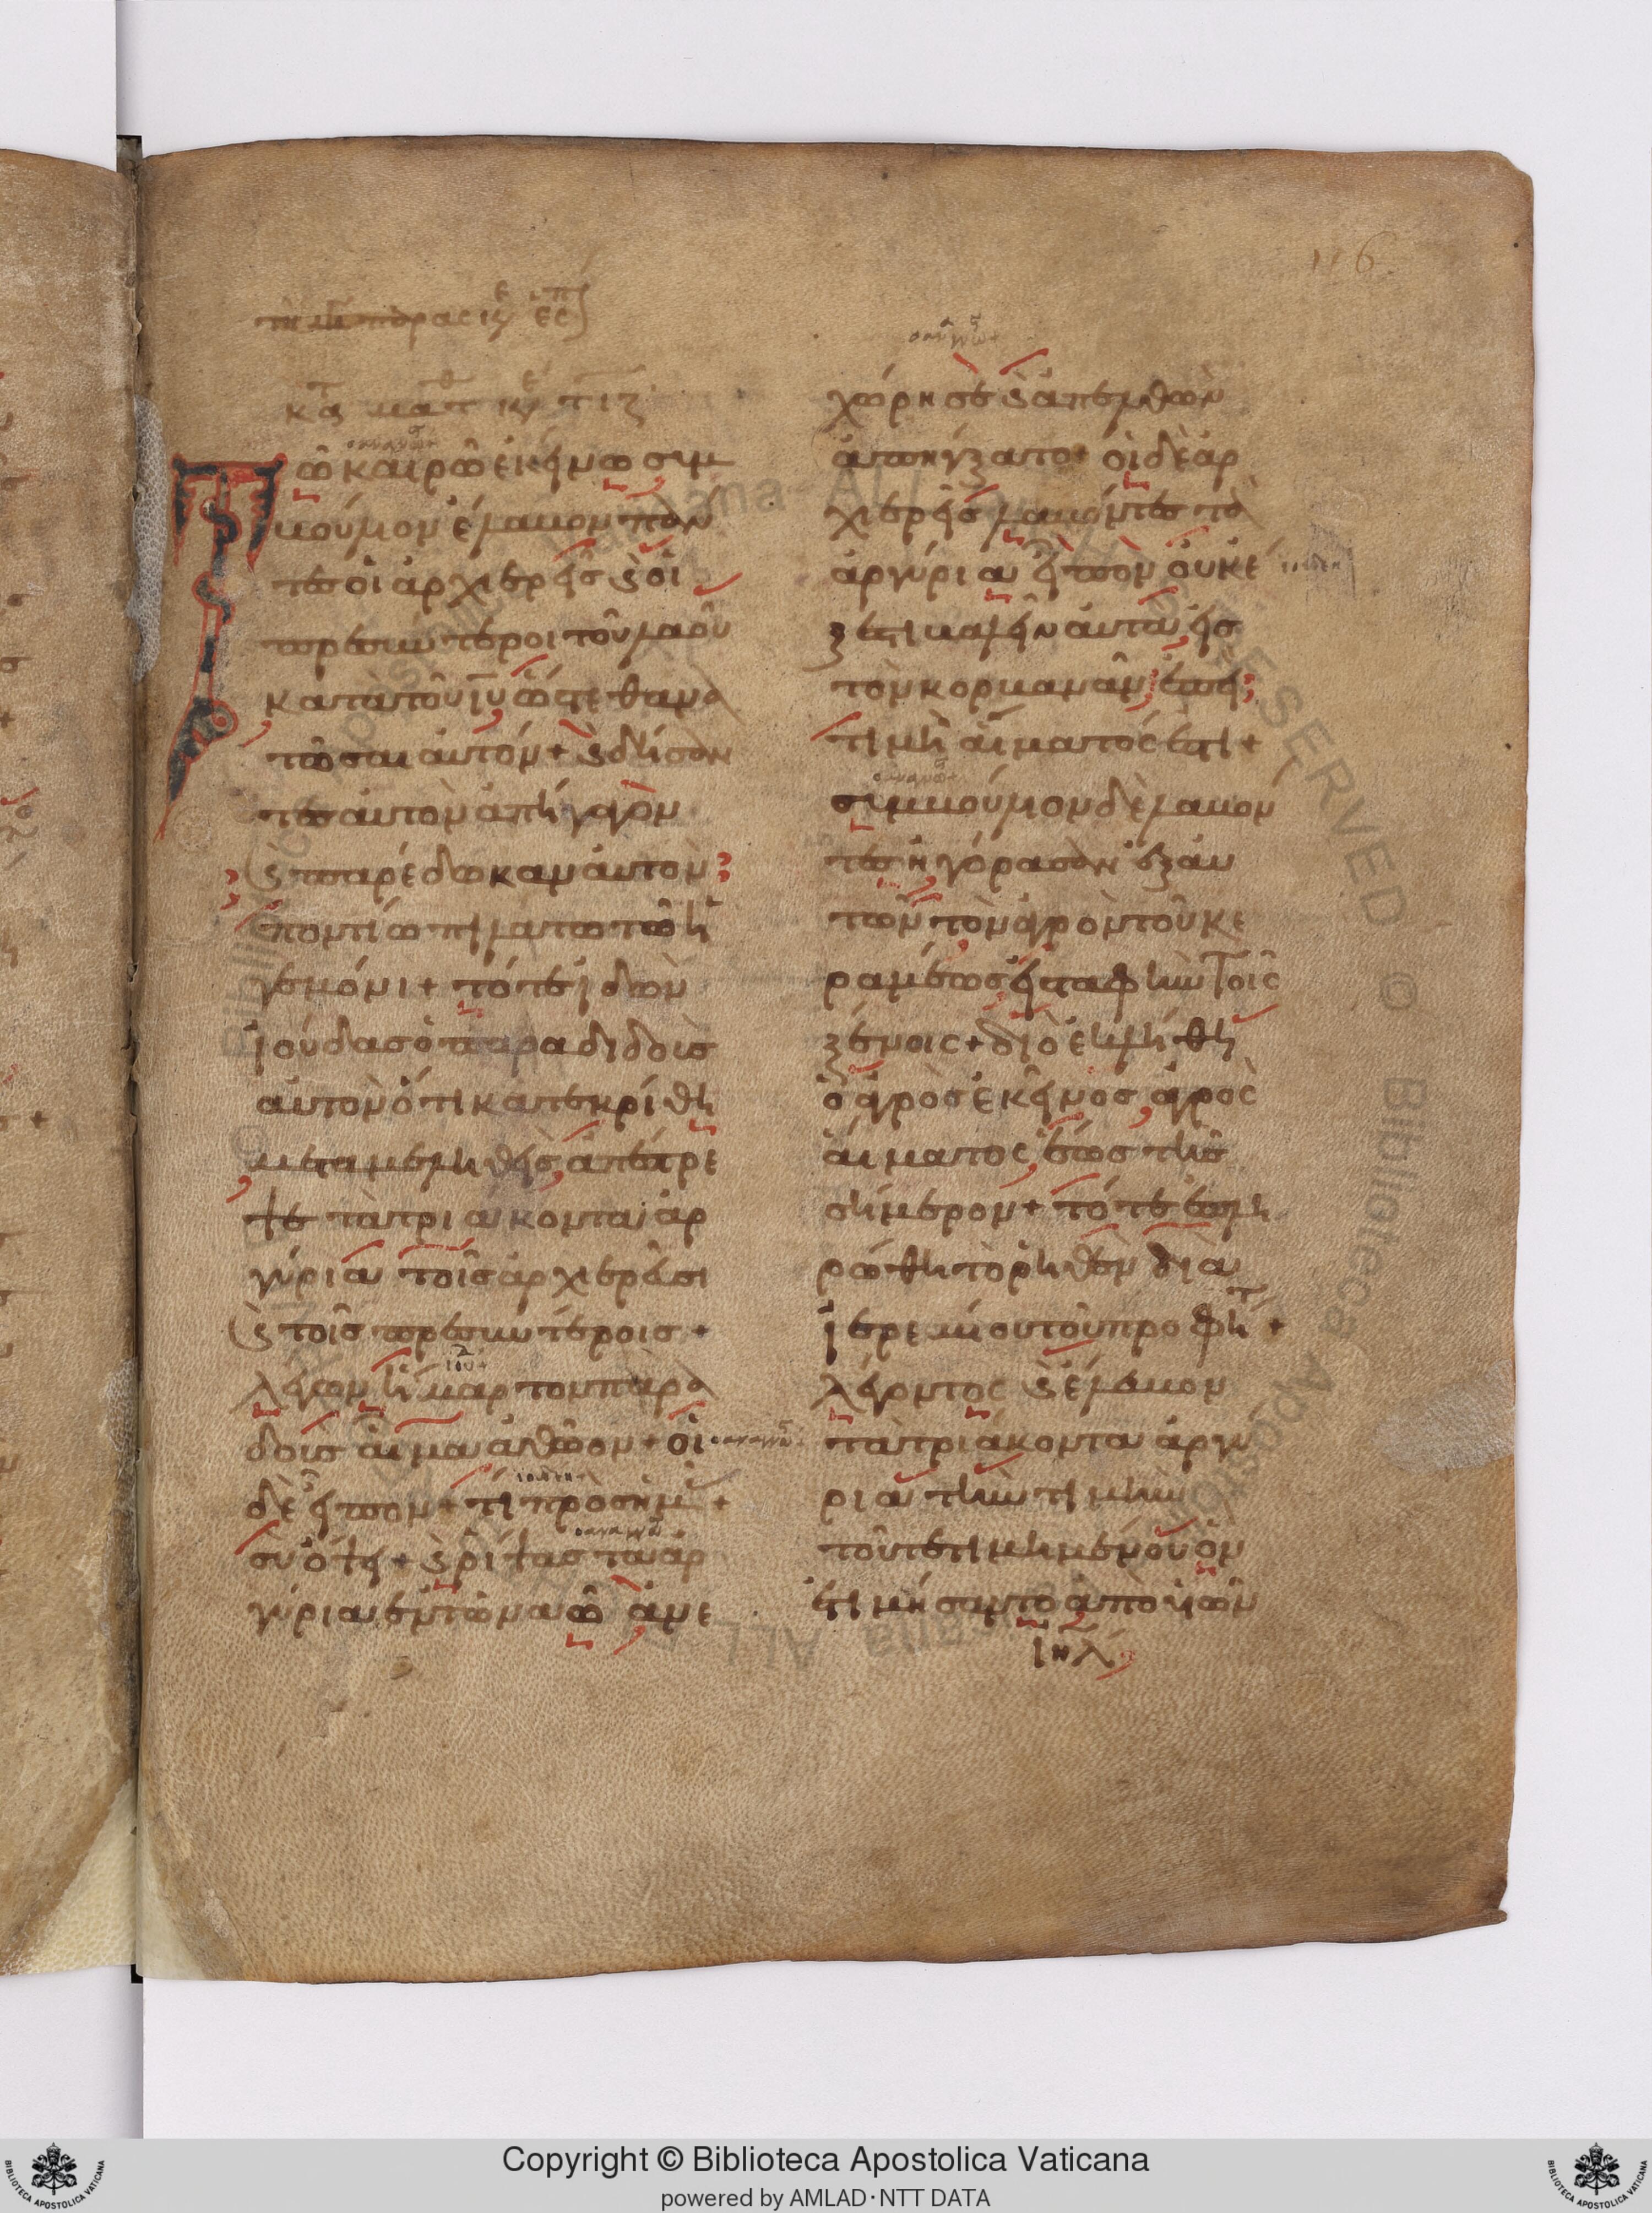 116
κατ ματθ
Τῶ καιρῶ ἐκείνω συμ
βούλιον ἔλαβον πάν
τες οἱ ἀρχιερεῖς ϗ οἱ
πρεσβύτεροι τοῦ λαοῦ
κατὰ τοῦ ιυ ὥστε θανα
τῶσαι αὐτόν + ϗ δήσαν
τες αὐτὸν ἀπήγαγον
ϗ παρέδωκαν αὐτὸν
ποντίω πηλάτω τῶ ἡ
γεμόνι + τότε ἰδὼν
ἰούδας ὁ παραδιδοὺς
αὐτὸν ὅτι κατεκρίθη
μεταμεληθεὶς ἀπέστρε
ψε τὰ τριάκοντα ἀρ
γύρια τοῖς ἀρχιερεῦσι
ϗ τοῖς πρεσβυτέροις +
λέγων ἥμαρτον παρα
δοὺς αἷμα ἀθῶον + οἱ
δὲ εἶπον + τί πρὸς ημ +
σὺ ὄψη + ϗ ρίψας τὰ ἀρ
γύρια ἐν τῶ ναῶ ἀνε
χώρησε ϗ ἀπελθὼν
ἀπηγξατο + οἱ δὲ ἀρ
χιερεῖς λαβόντες τὰ
ἀργύρια εἶπον οὐκ ἔ
ξεστι βαλεῖν αὐτὰ εἰς
τὸν κορβανᾶν ἐπεὶ
τιμὴ αἵματός ἐστι +
συμβούλιον δὲ λαβόν
τες ηγόρασαν ἐξ αὐ
τῶν τὸν ἀγρὸν τοῦ κε
ραμέως εἰς ταφὴν τοῖς
ξένοις + διὸ ἐκλήθη
ὁ ἀγρὸς ἐκεῖνος ἀγρὸς
αἵματος ἕως τῆς
σήμερον + τότε ἐπλη
ρώθη τὸ ρηθὲν διὰ
ἱερεμίου τοῦ προφη +
λέγοντος ϗ ἔλαβον
τὰ τριάκοντα ἀργύ
ρια τὴν τιμὴν
τοῦ τετιμημένου ὃν
ἐτιμήσαντο ἀπὸ υἱῶν
ιηλ
Copyright © Biblioteca Apostolica Vaticana
powered by AMLAD·NTT DATA